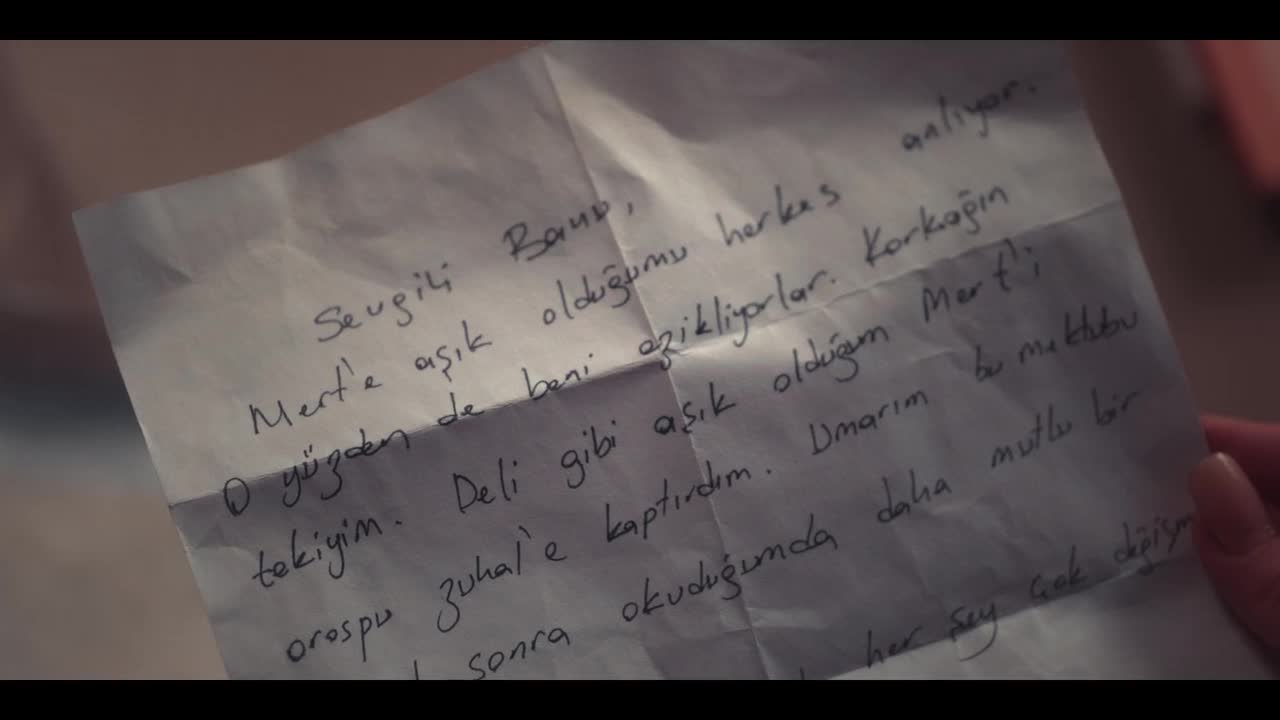 Sevgili Banu,
Mert'e aşık olduğumu herkes anlıyor.
O yüzden de beni ezikliyorlar. Korkağın
tekiyim. Deli gibi aşık olduğum Mert'i
orospu zuhal'e kaptırdım. Umarım bu mektubu
sonra okuduğumda daha mutlu bir
her şey çok